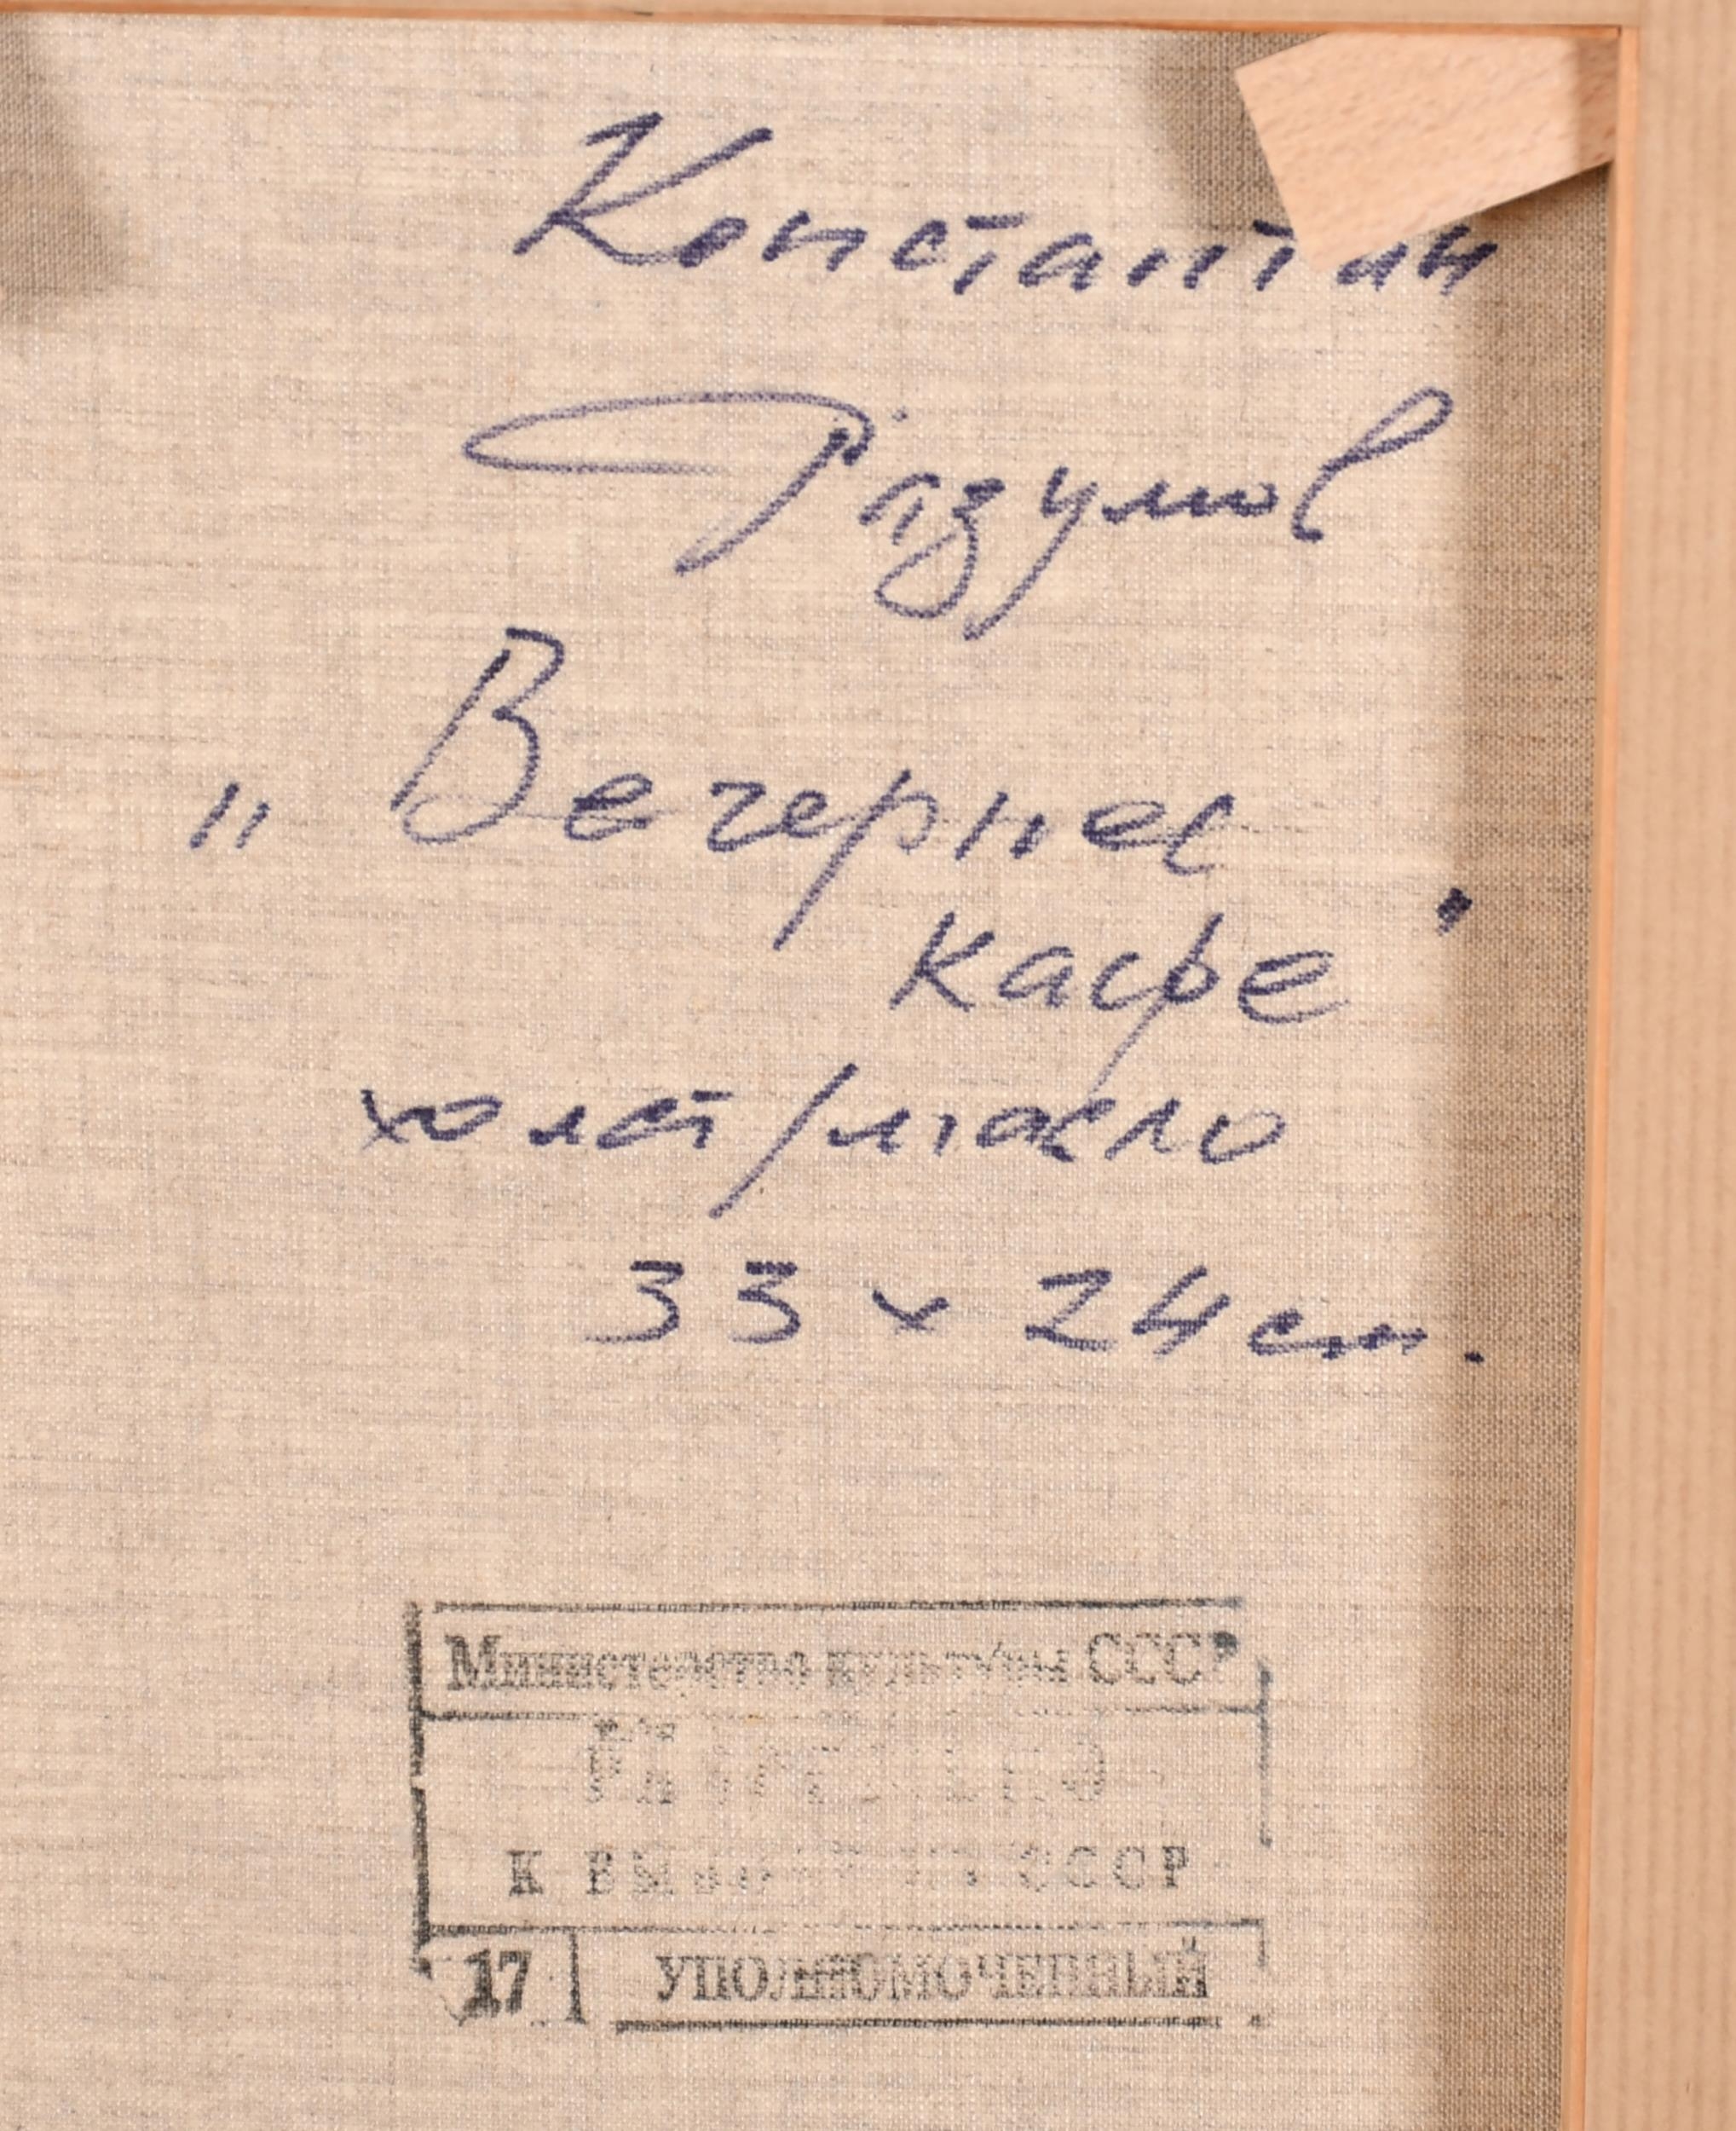 Константин
Разумов
„Вечернее
кафе"
холст/масло
33 x 24 см.
Министерство культуры СССР
К СССР
17 УПОЛНОМОЧЕННЫЙ